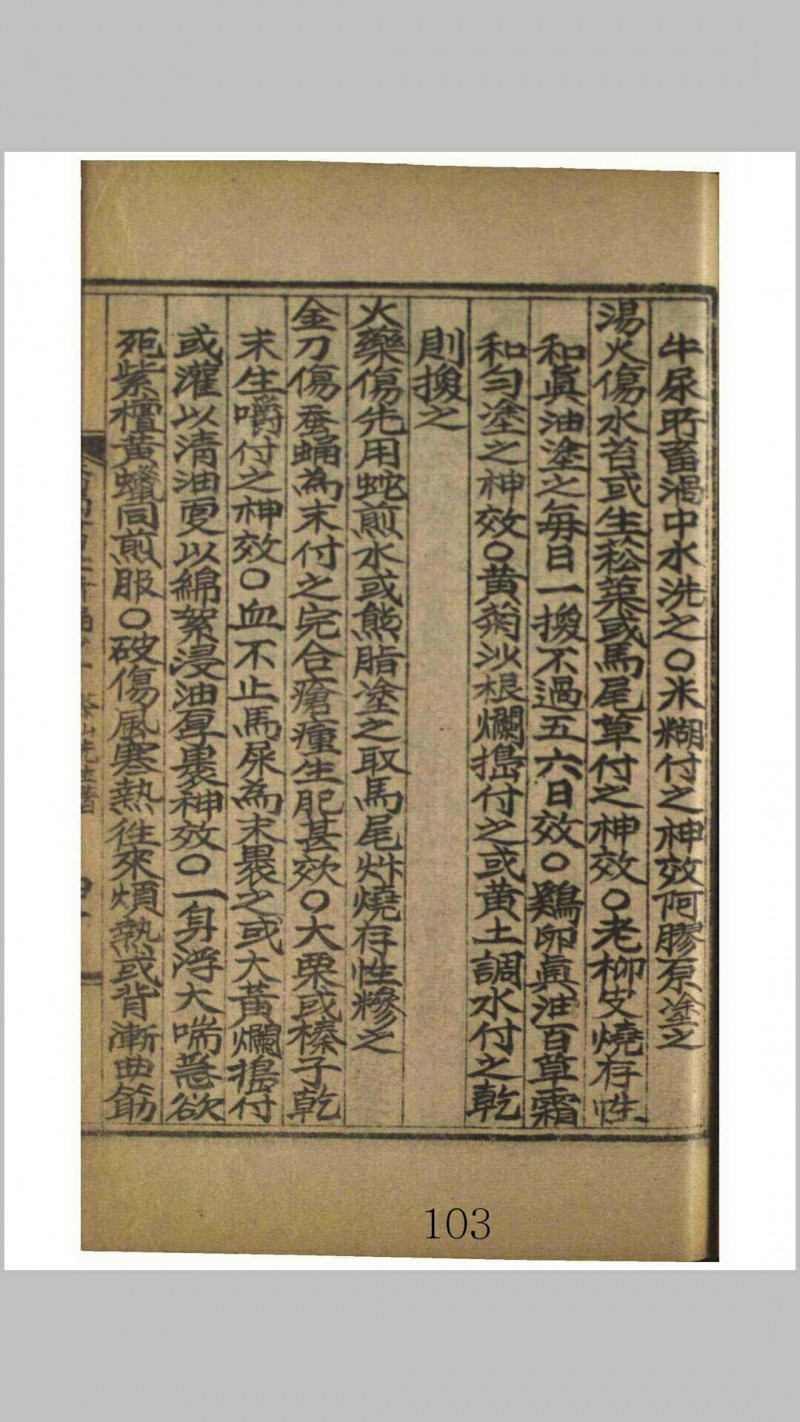 牛尿所畜湯中水洗之○米糊付之神效阿膠原塗之
湯火傷水苔或生菘菜或馬尾草付之神效○老柳皮燒存性
和眞油塗之每日一換不過五六日效○鷄卵眞油百草霜
和勻塗之神效○黃菊沙根爛搗付之或黃土調水付之乾
則換之
火藥傷先用蛇煎水或熊脂塗之取馬尾艸燒存性糝之
金刀傷蚕蛹為末付之完合瘡瘇生肥甚效○大栗或榛子乾
末生嚼付之神效○血不止馬尿為末裹之或大黃爛搗付
或灌以清油更以綿絮浸油厚裹神效○一身浮大喘急欲
死紫檀黃蠟同煎服○破傷風寒熱往來煩熱或背漸曲筋
103